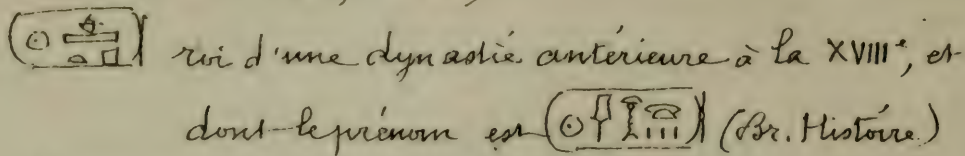 (𓇳𓊵𓏏𓊪) roi d'une dynastie antérieure à la XVIIIᵉ, et
dont le prénom est (𓇳𓌂𓎝𓈍𓏥) (Br. Histoire)